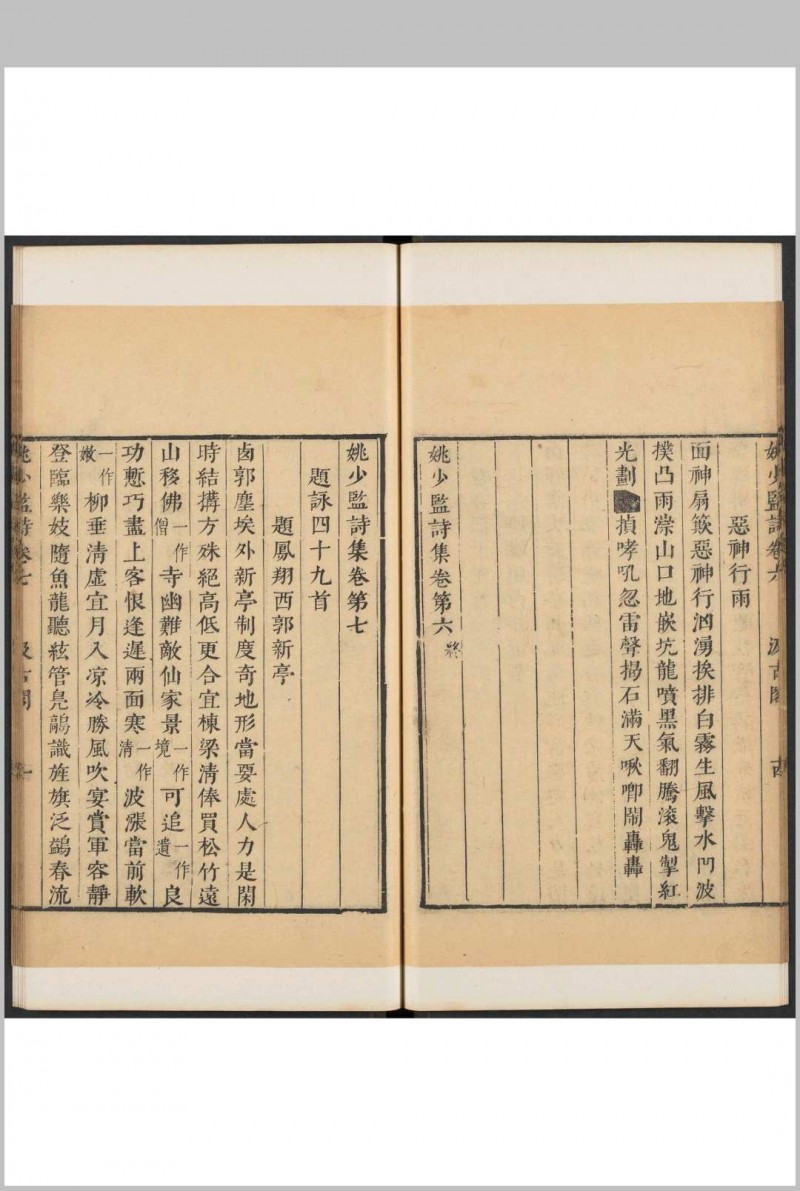 姚少監詩卷六 汲古閣
惡神行雨
面神扇簸惡神行汹湧挨排白霧生風擊水門波
撲凸雨漴山口地嵌坑龍噴黑氣翻騰滾鬼掣紅
光劃損哮吼忽雷聲揭石滿天啾唧鬧轟轟
姚少監詩集卷第六 終
姚少監詩集卷第七
題詠四十九首
題鳳翔西郭新亭
鹵郭塵埃外新亭制度奇地形當要處人力是閑
時結搆方殊絕高低更合宜棟梁清俸買松竹遠
山移佛一作僧寺幽難敵仙家景一作境可追一作遺良
功慙巧盡上客恨逢遲兩面寒一作清波漲當前軟
一作嫩柳垂清虛宜月入凉冷勝風吹宴賞軍容靜
登臨樂妓隨魚龍聽絃管鳧鷸識旌旗泛鷁春流
姚少監詩卷七 汲古閣 一